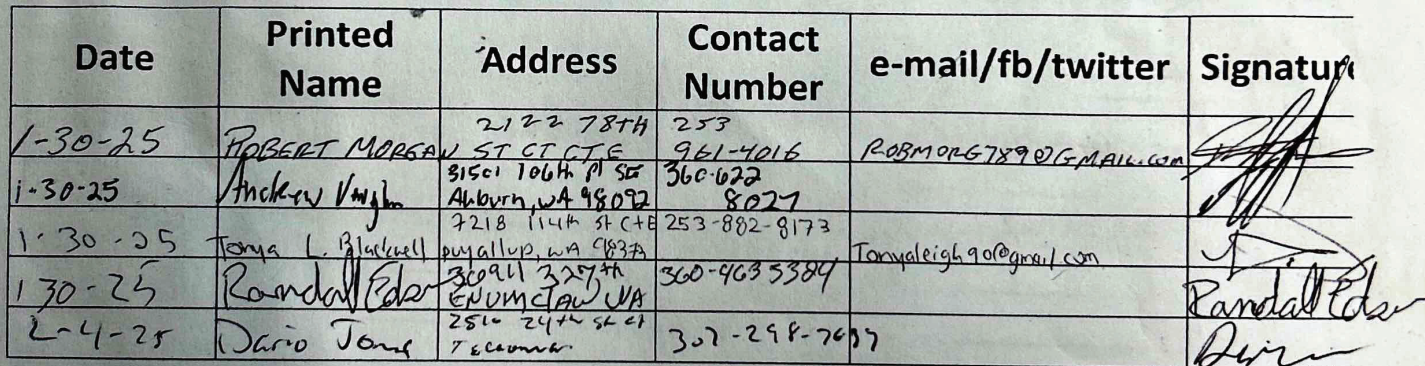 Date Printed Name Address Contact Number e-mail/fb/twitter Signature
1-30-25 ROBERT MORGAN 2122 78TH ST CT CTE 253 961-4016 ROBMORG789@GMAIL.com
1-30-25 Andrew 106th Pl SE Auburn, WA 98092 360-622 8027
1-30-25 Tonya L. Blackwell 7218 114th St CtE puyallup, WA 98373 253-882-8173 Tonyaleigh90@gmail.com
1 30-25 Randall 327th ENUMCLAW WA 360-463 5384 Randall
2-4-25 Dario 24th St Ct